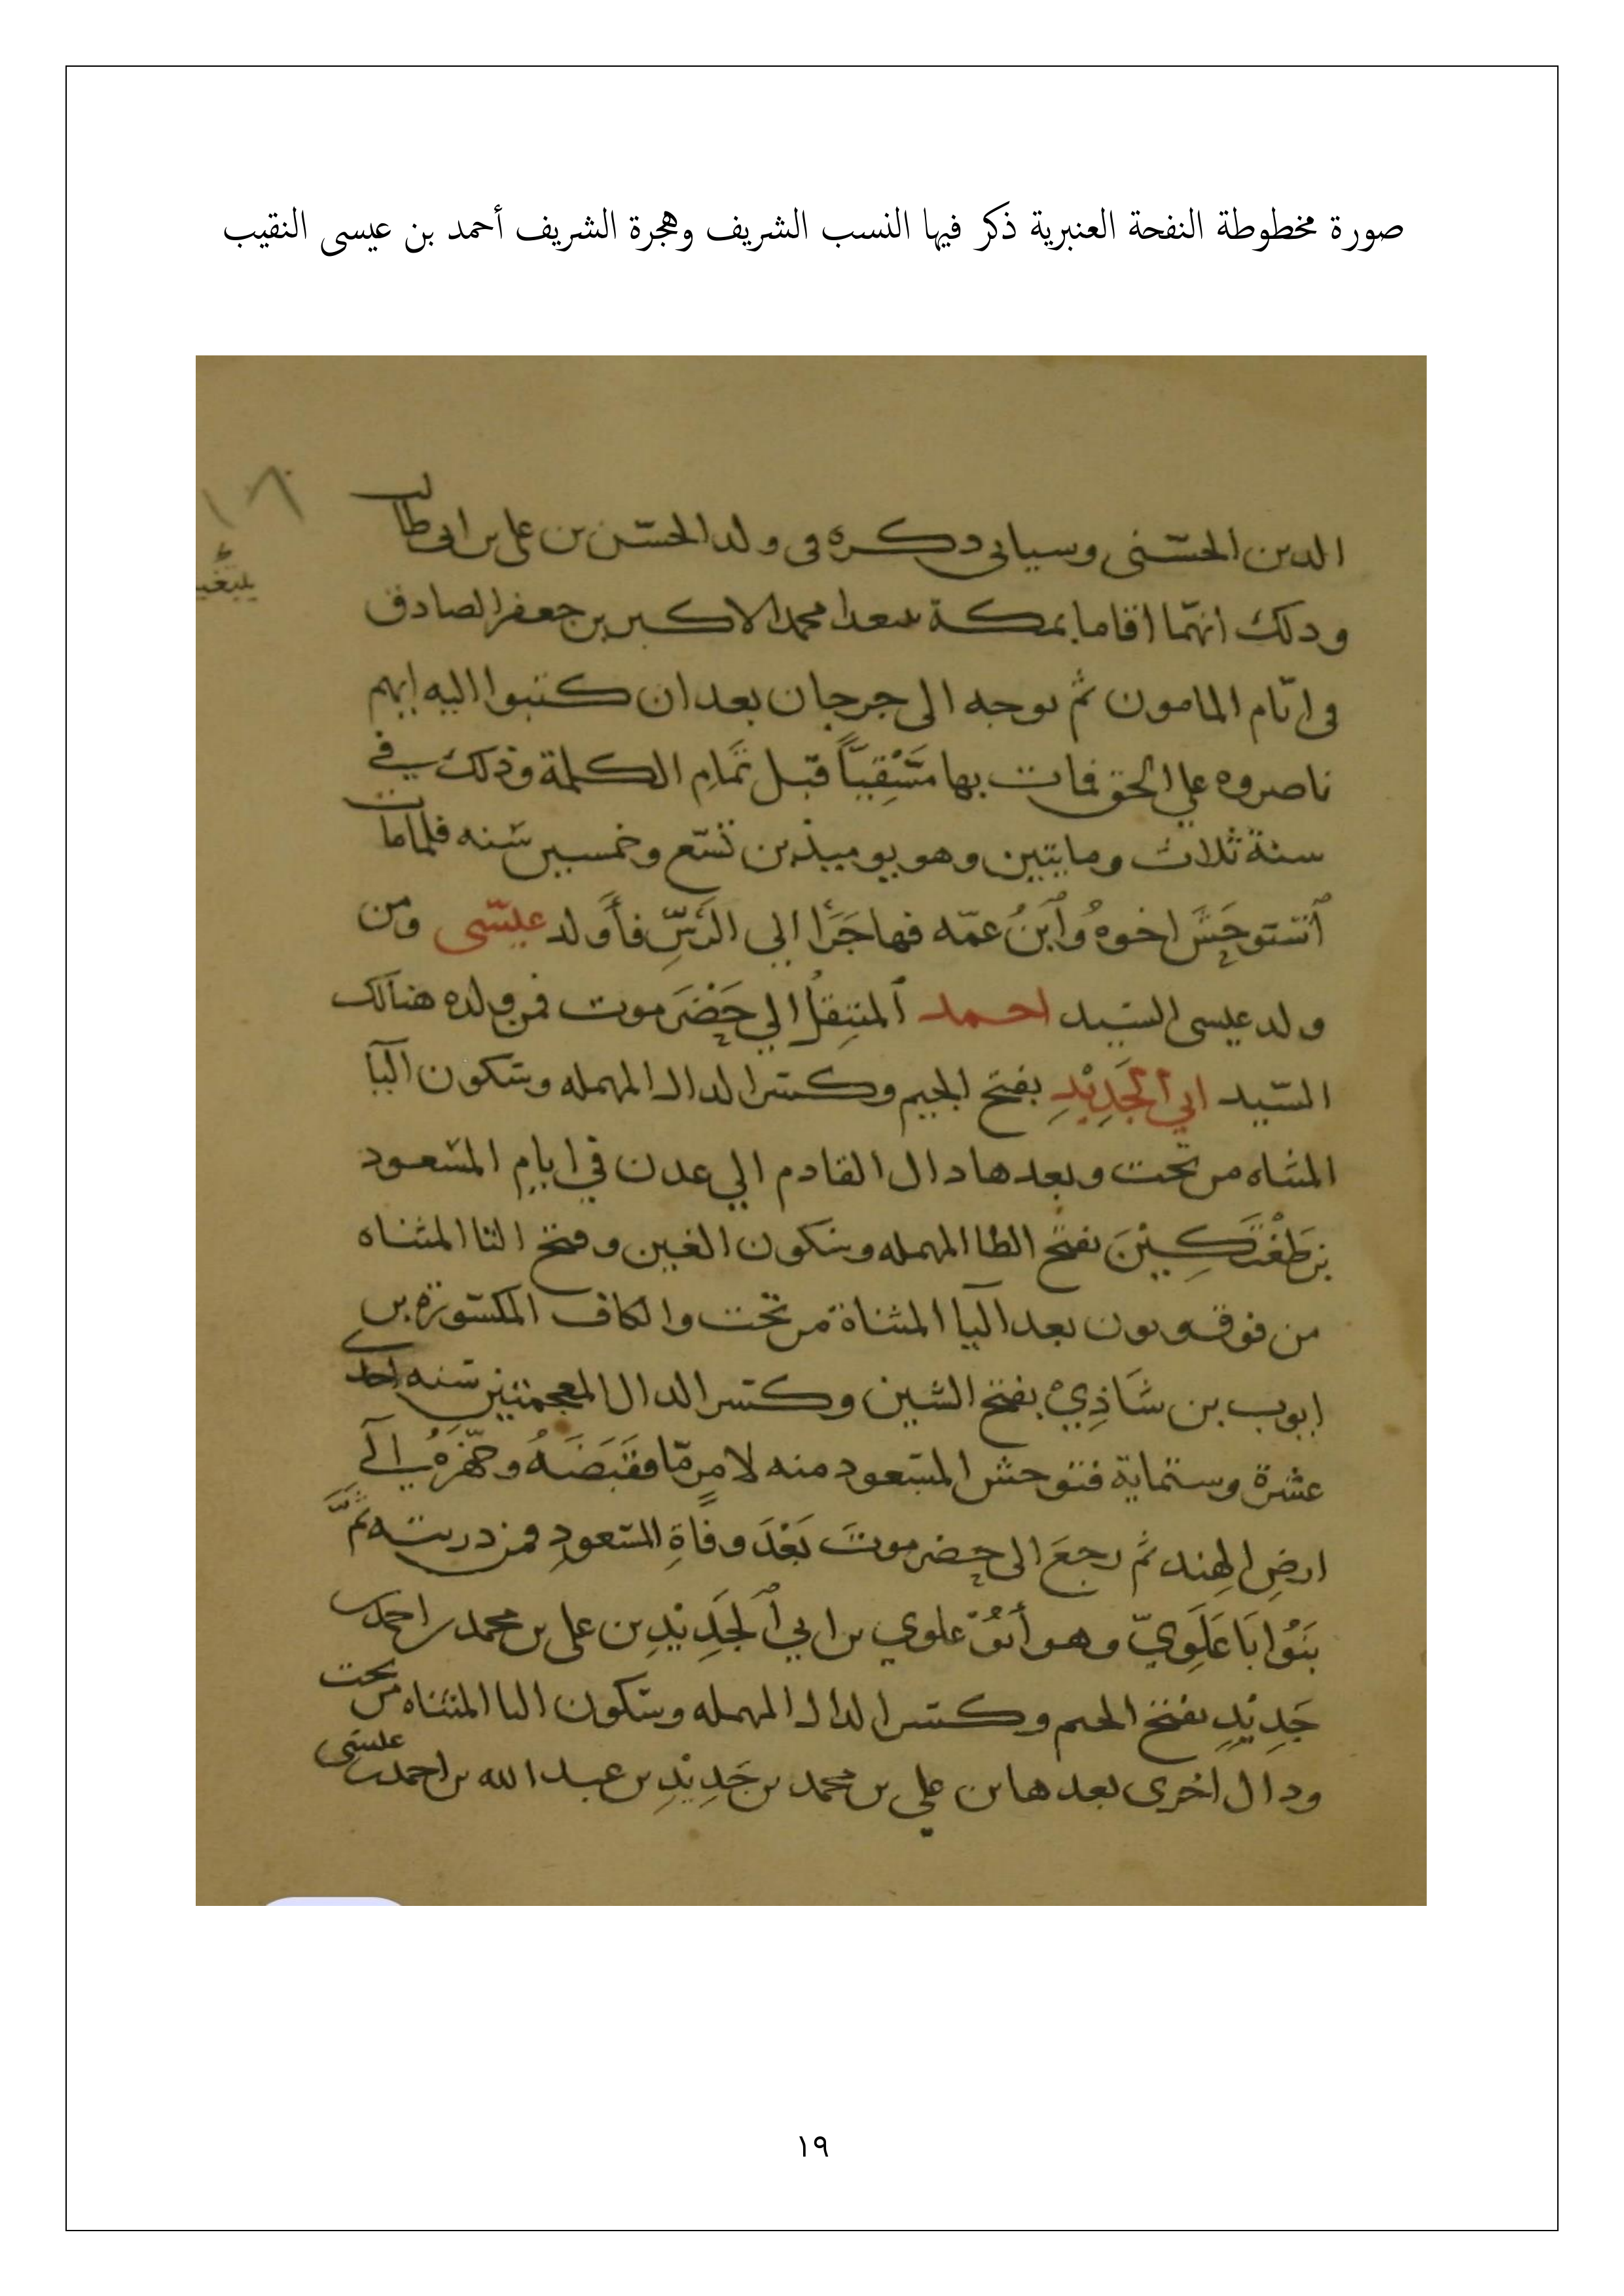 صورة مخطوطة النفحة العنبرية ذكر فيها النسب الشريف وهجرة الشريف أحمد بن عيسى النقيب
١٨
الدين الحسني وسياتي دكره في ولد الحسن بن علي بن ابي طالب
ودلك انهما اقاما بمكة بعد محمد الاكبر بن جعفر الصادق
في ايام المامون ثم توجه الى جرجان بعد ان كتبوا اليه ابهم
ناصروه علي الحق فمات بها مَسْقِيّاً قبل تَمَامِ الكلمة وذلك في
سنة ثلاث ومايتين وهو يوميذ بن تسع وخمسين سنه فلما مات
ٱستوحَشَ اخوهُ وٱبنُ عمّه فهاجَرَا الي الرَسِّ فأَولد عيسى ومن
ولد عيسى السيد احمد ٱلمنتقلُ الي حَضْرَموت فمن ولده هنالك
السيد ابي ٱلجَدِيْدِ بفتح الجيم وكسر الدال المهمله وسكون اليا
المثناه من تحت وبعدها دال القادم الي عدن في ايام المسعود
بن طَغْتَكِيْنَ بفتح الطا المهمله وسكون الغين وفتح التا المثناه
من فوق ونون بعد اليا المثناة من تحت والكاف المكسورة بن
ايوب بن شَاذِيْ بفتح الشين وكسر الدال المعجمتين سنه احدى
عشرة وستماية فتوحش المسعود منه لامرٍ مّا فقَبَضَهُ وجهّزهُ الَى
ارضِ الهند ثم رجعَ الى حضرموتَ بَعْدَ وفاةِ المسعودِ فمن دريته ثَمَّ
بَنُوا بَا عَلَوِيّ وهو أبُوْ علوي بن ابي ٱلجَدِيْدِ بن علي بن محمد بن احمد بن
جَدِيْدِ بفتح الجيم وكسر الدال المهمله وسكون اليا المثناه من تحت
ودال اخرى بعدها بن علي بن محمد بن جَدِيْدِ بن عبد الله بن احمد بن عيسى
١٩